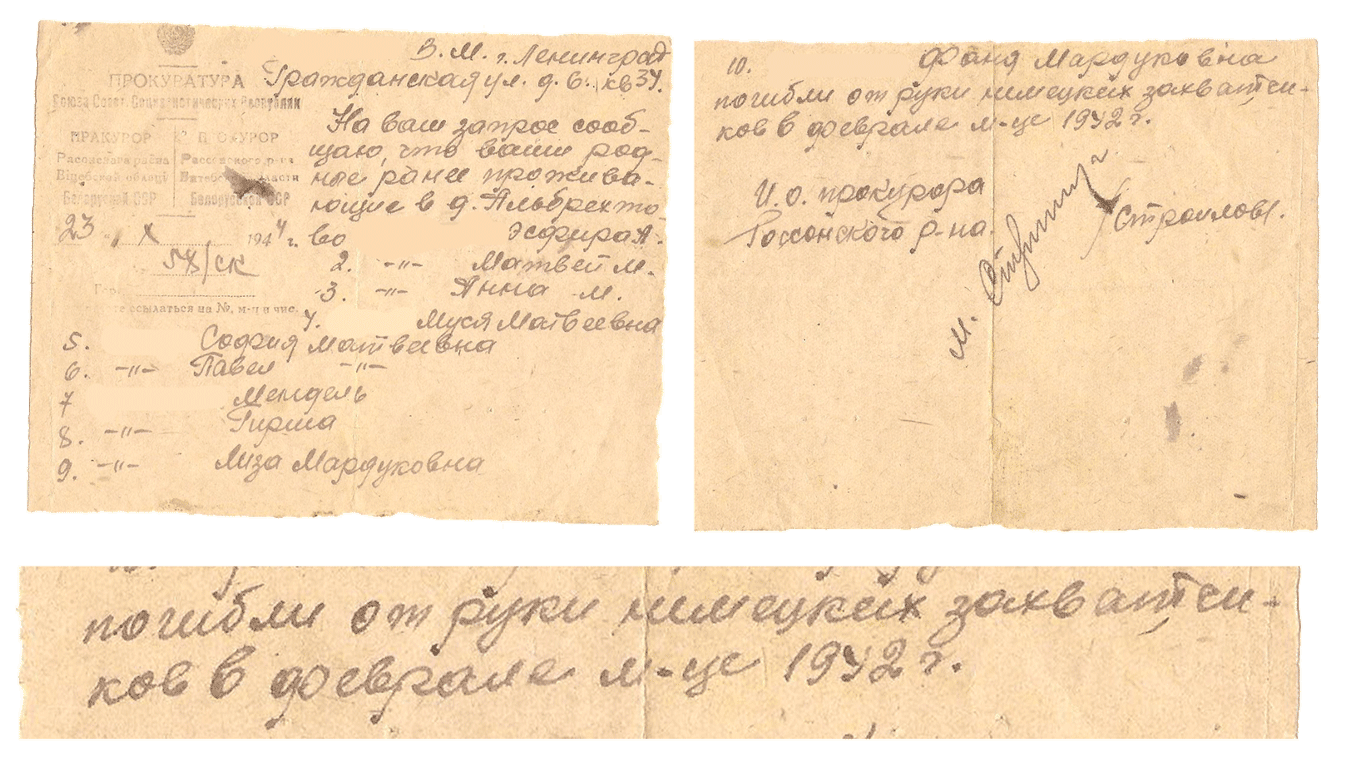 В. М. г. Ленинград
ПРОКУРАТУРА Гражданская ул. д. 6. кв 34.
Союза Совет. Социалистических Республик
На ваш запрос сооб-
ПРАКУРОР ПРОКУРОР
щаю, что ваши род-
Расписнага раёна Россонского р-на
ные ранее прожива-
Віцебской області Витебской области
Беларускай ССР Белорусской ССР
ющие в д. Альбрехто-
23 " X 1944 г. во Эсфира А.
58/ск
2. -"- Матвей М.
3. -"- Анна М.
ссылаться на №, м-ц и чис.
4. Муся Матвеевна
5. София Матвеевна
6. -"- Павел -"-
7 Мендель
8. -"- Гирша
9. -"- Лиза Мардуковна
10. Фаня Мардуковна
погибли от руки немецких захватчи-
ков в феврале м-це 1942 г.
И. о. прокурора
Россонского р-на.
М.
/Строилов/.
погибли от руки немецких захватчи-
ков в феврале м-це 1942 г.